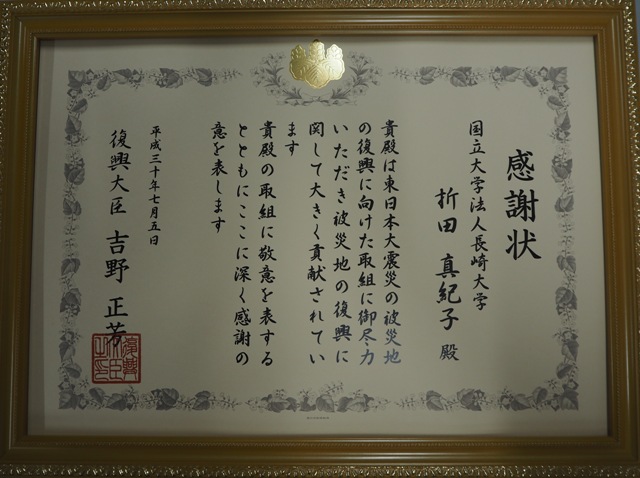 感謝状
国立大学法人長崎大学
折田 真紀子 殿
貴殿は東日本大震災の被災地
の復興に向けた取組に御尽力
いただき被災地の復興に
関して大きく貢献されてい
ます
貴殿の取組に敬意を表する
とともにここに深く感謝の
意を表します
平成三十年七月五日
復興大臣 吉野 正芳
復興大臣之印